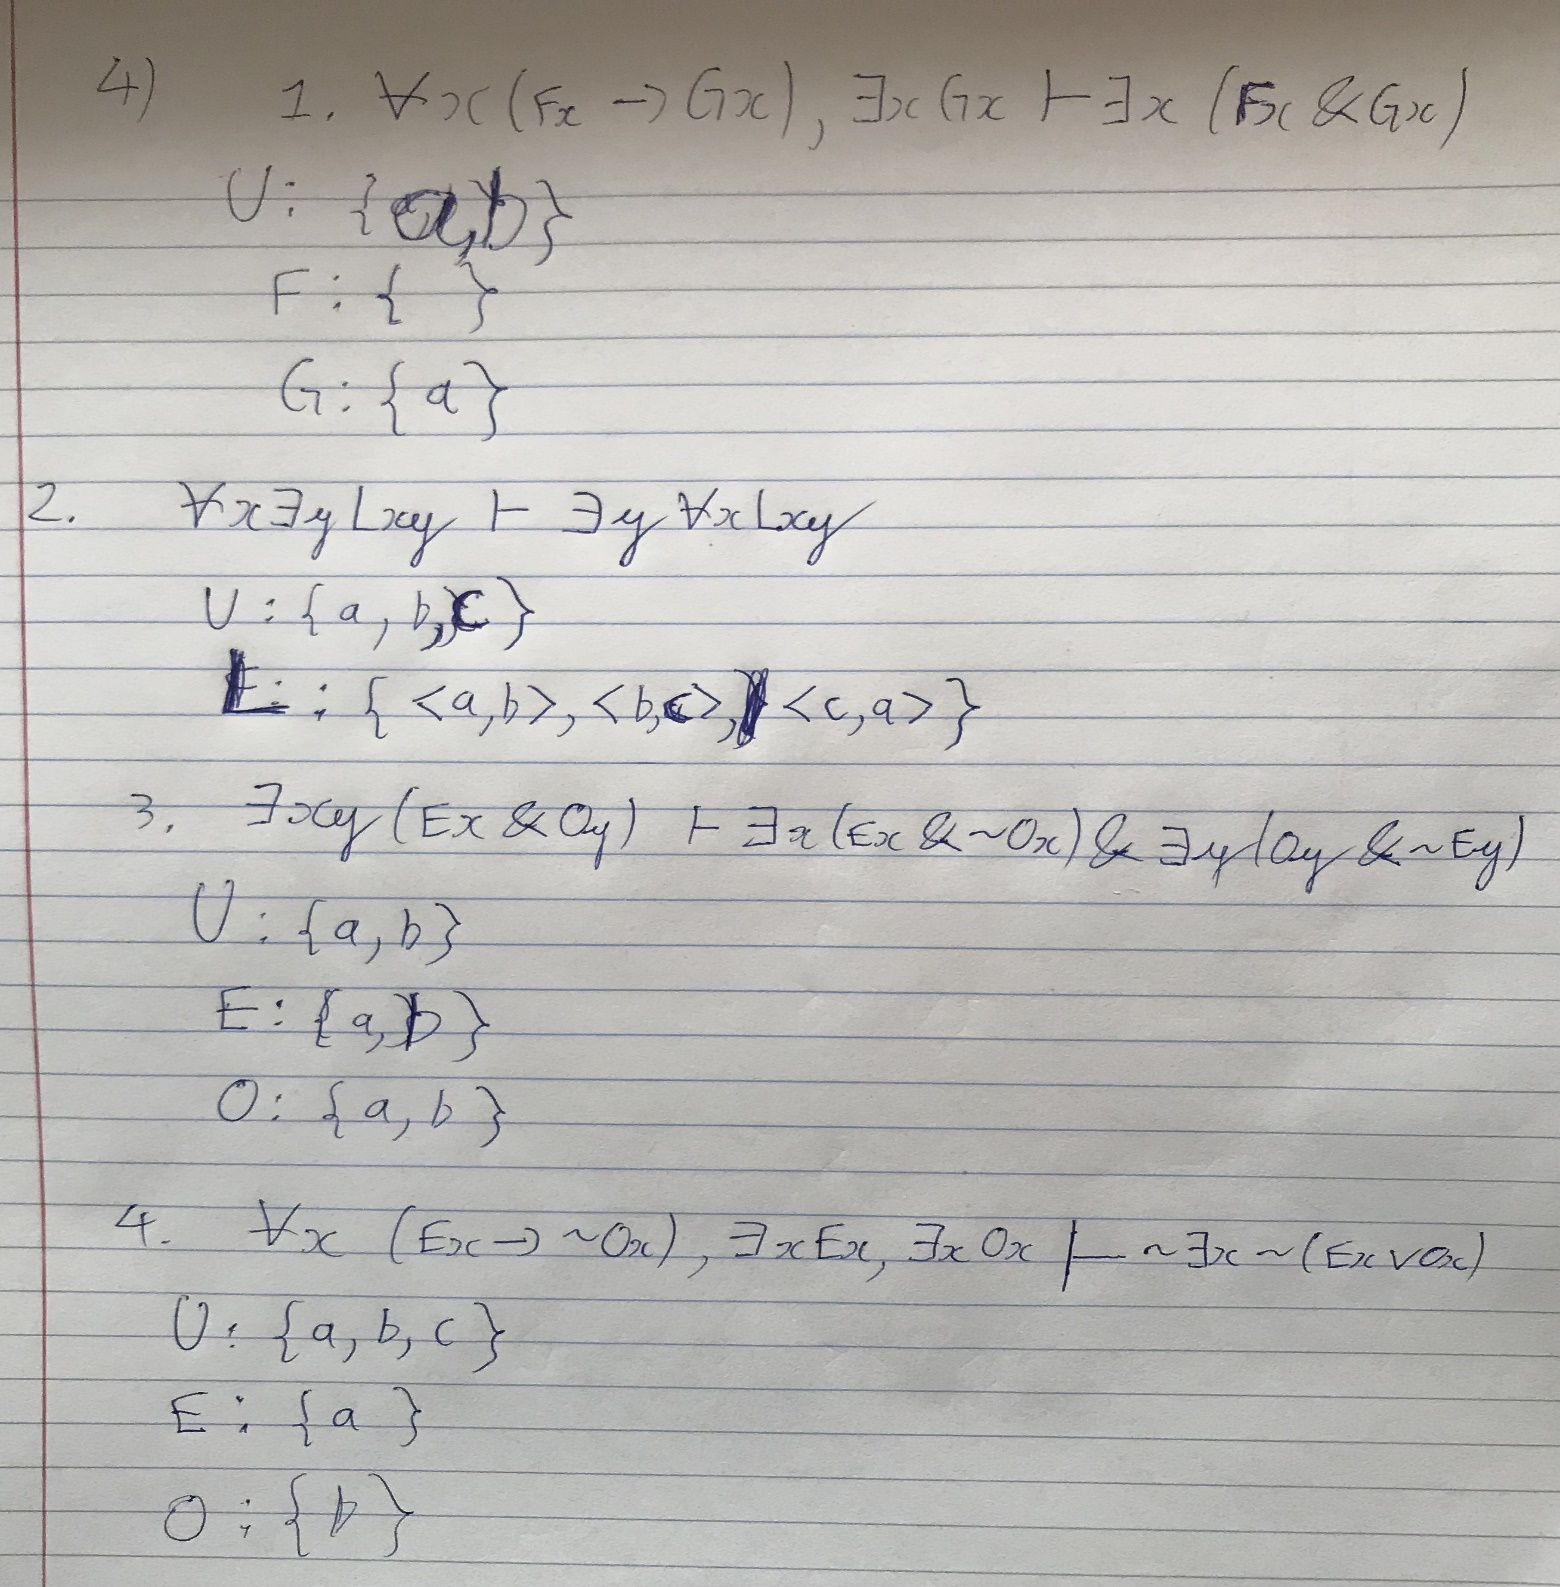 4) 1. ∀x(Fx → Gx), ∃xGx ⊢ ∃x(Fx & Gx)
U: {a,b}
F: { }
G: {a}
2. ∀x∃yLxy ⊢ ∃y∀xLxy
U: {a, b, c}
L: {<a,b>, <b,c>, <c,a>}
3. ∃xy(Ex & Oy) ⊢ ∃x(Ex & ~Ox) & ∃y(Oy & ~Ey)
U: {a, b}
E: {a, b}
O: {a, b}
4. ∀x (Ex → ~Ox), ∃xEx, ∃xOx ⊢ ~∃x~(Ex ∨ Ox)
U: {a, b, c}
E: {a }
O: {b}